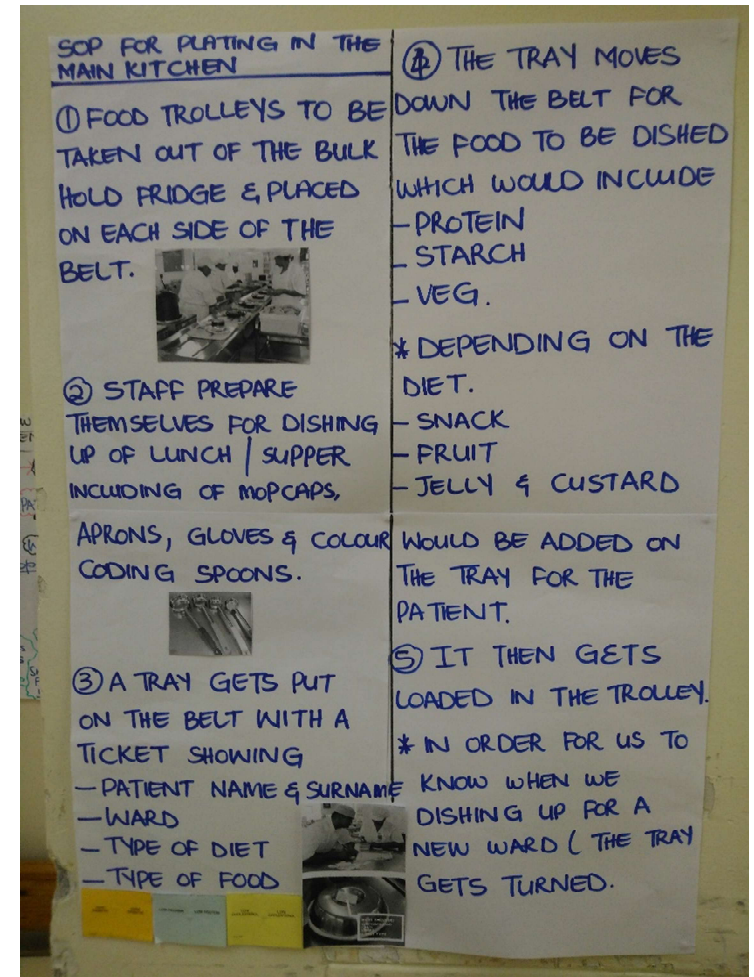 SOP FOR PLATING IN THE
MAIN KITCHEN
① FOOD TROLLEYS TO BE
TAKEN OUT OF THE BULK
HOLD FRIDGE & PLACED
ON EACH SIDE OF THE
BELT.
② STAFF PREPARE
THEMSELVES FOR DISHING
UP OF LUNCH / SUPPER
INCLUDING OF MOPCAPS,
APRONS, GLOVES & COLOUR
CODING SPOONS.
③ A TRAY GETS PUT
ON THE BELT WITH A
TICKET SHOWING
- PATIENT NAME & SURNAME
- WARD
- TYPE OF DIET
- TYPE OF FOOD
④ THE TRAY MOVES
DOWN THE BELT FOR
THE FOOD TO BE DISHED
WHICH WOULD INCLUDE
- PROTEIN
- STARCH
- VEG.
* DEPENDING ON THE
DIET.
- SNACK
- FRUIT
- JELLY & CUSTARD
WOULD BE ADDED ON
THE TRAY FOR THE
PATIENT.
⑤ IT THEN GETS
LOADED IN THE TROLLEY.
* IN ORDER FOR US TO
KNOW WHEN WE
DISHING UP FOR A
NEW WARD ( THE TRAY
GETS TURNED.